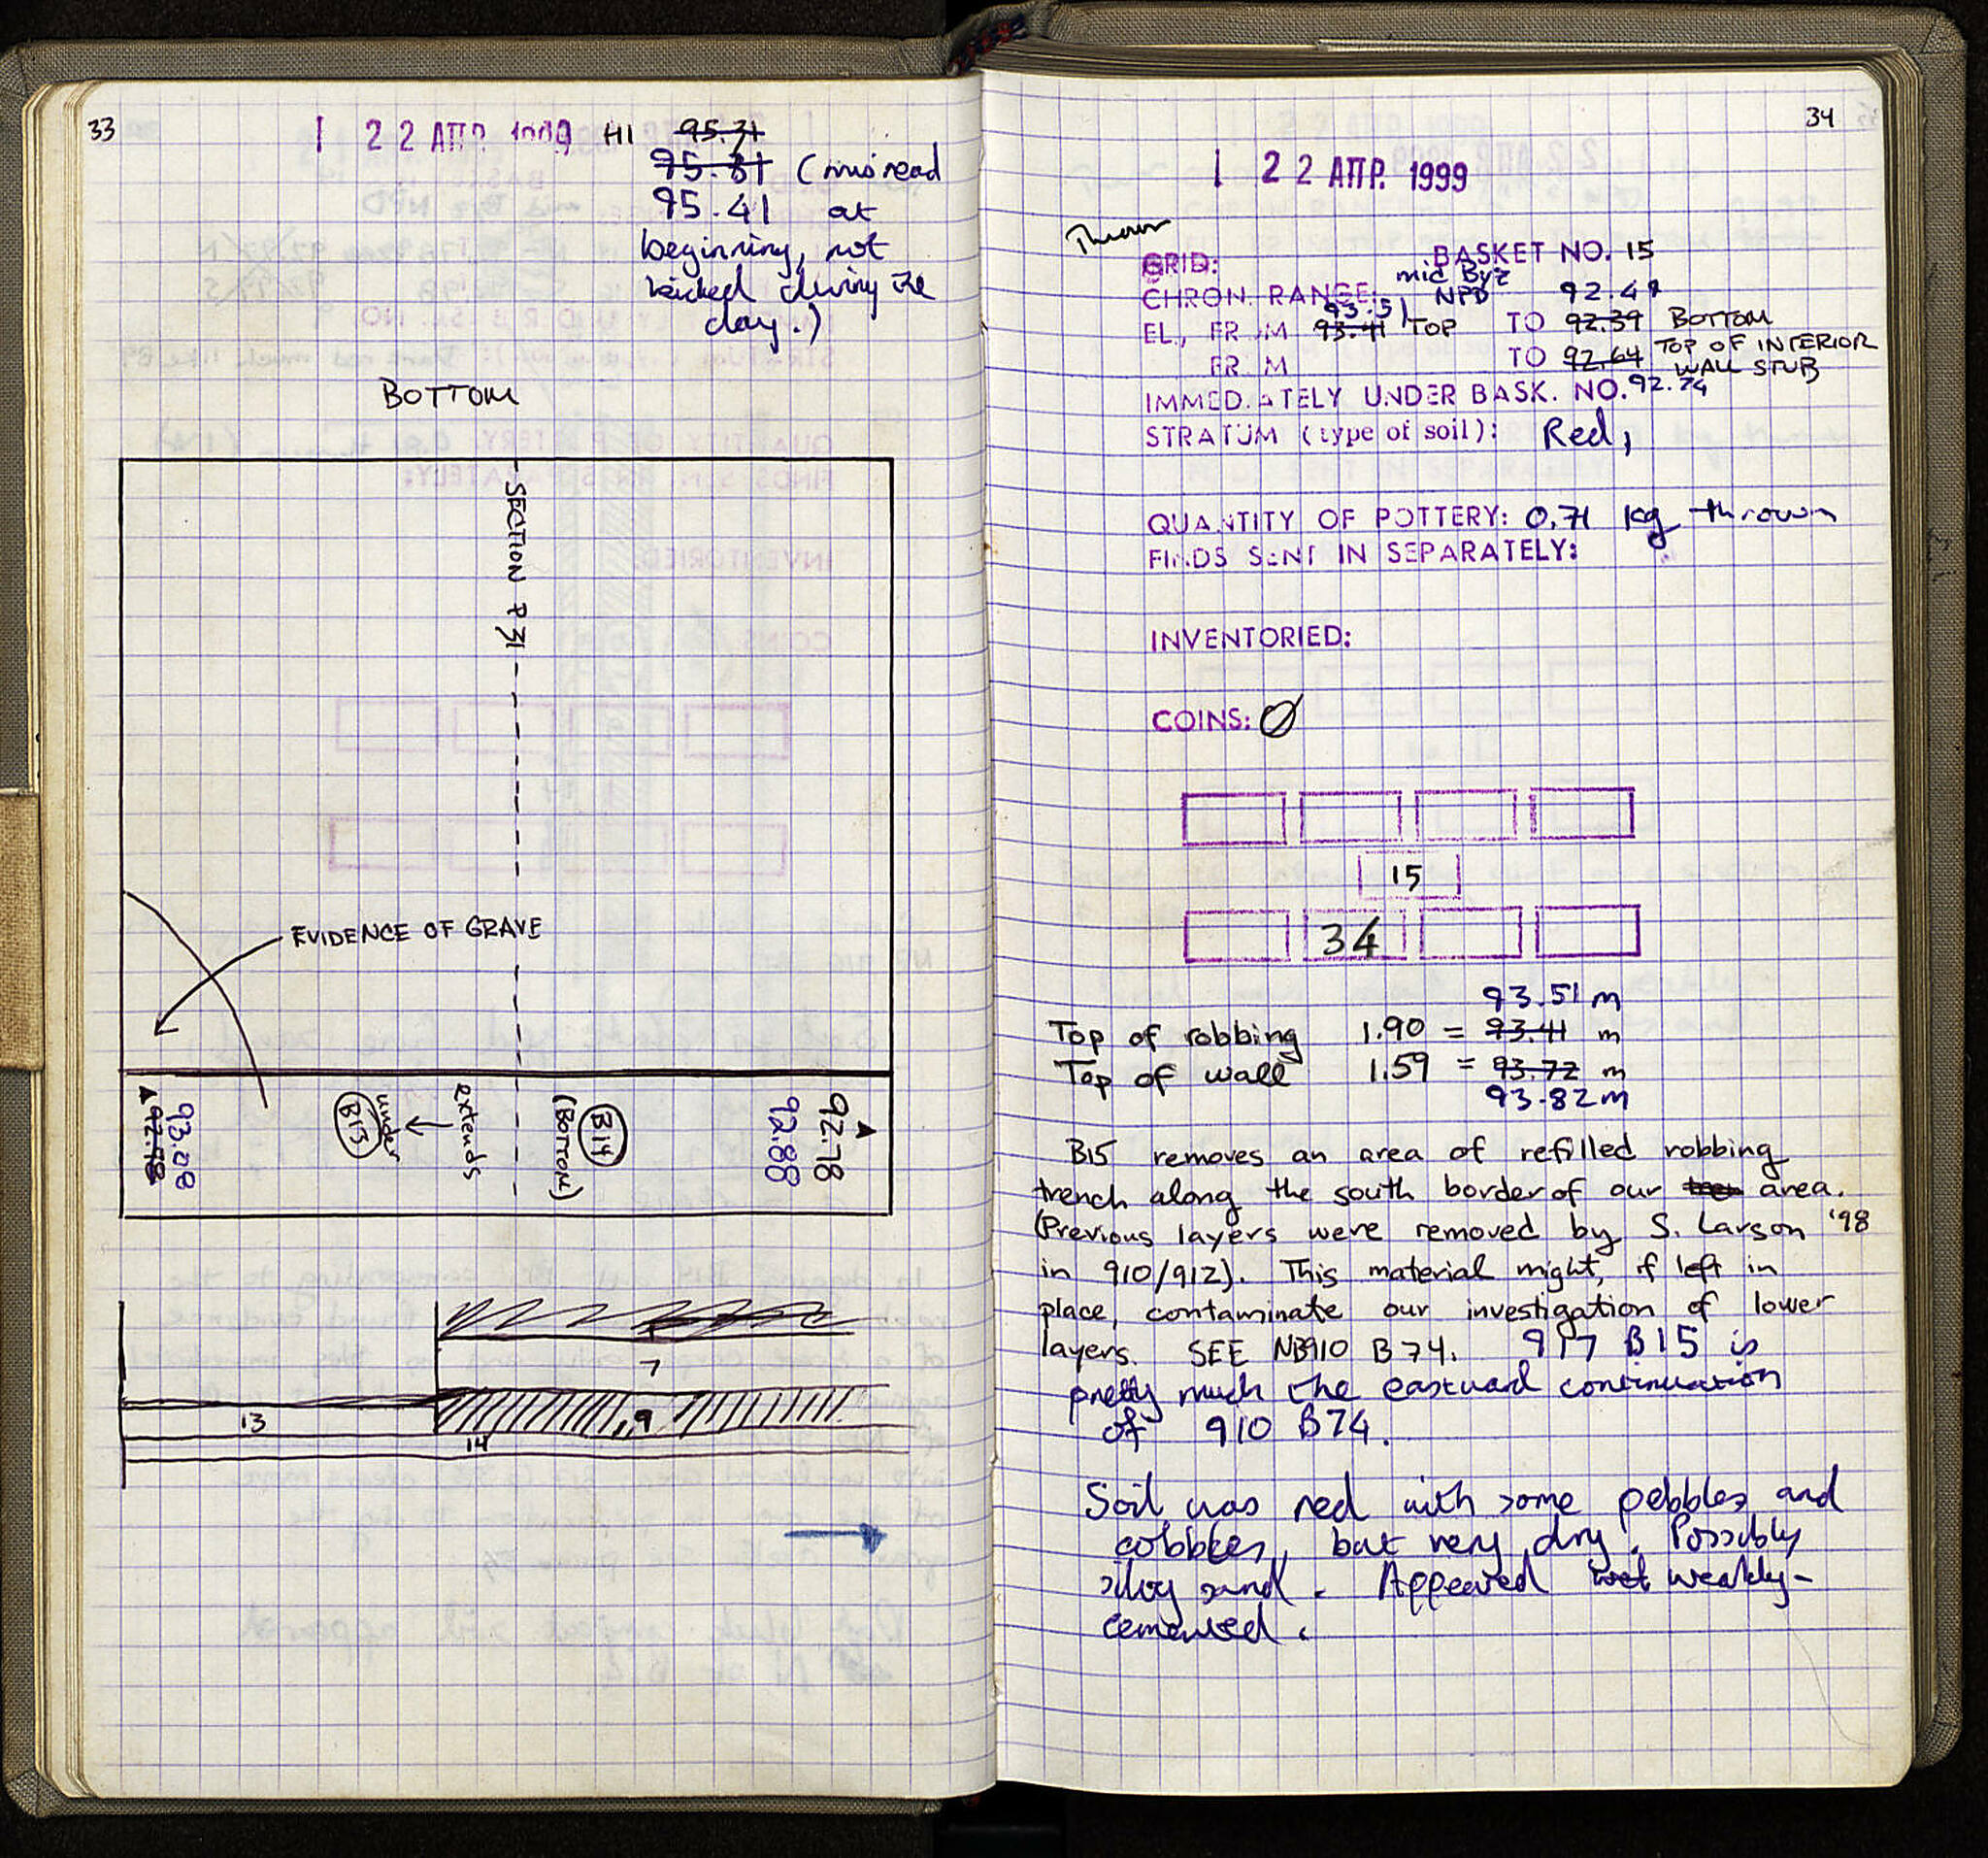 33
1 22 ΑΠΡ. 1999 HI 95.31
95.31 (misread
95.41 at
beginning, not
kicked during the
day.)
BOTTOM
SECTION P 31
EVIDENCE OF GRAVE
93.08
92.98
B13
under
extends
(BOTTOM)
B14
92.78
92.88
7
13
9
14
34
1 22 ΑΠΡ. 1999
Thrown
GRID: BASKET NO. 15
mid Byz
CHRON. RANGE: NPD 92.49
93.51
EL., FROM 93.41 TOP TO 92.39 BOTTOM
FROM TO 92.64 TOP OF INTERIOR
WALL STUB
IMMEDIATELY UNDER BASK. NO. 92.74
STRATUM (type of soil): Red,
QUANTITY OF POTTERY: 0.71 kg thrown
FINDS SENT IN SEPARATELY:
INVENTORIED:
COINS: Ø
15
34
93.51 m
Top of robbing 1.90 = 93.41 m
Top of wall 1.59 = 93.72 m
93.82 m
B15 removes an area of refilled robbing
trench along the south border of our area.
(Previous layers were removed by S. Larson '98
in 910/912). This material might, if left in
place, contaminate our investigation of lower
layers. SEE NB910 B74. 917 B15 is
pretty much the eastward continuation
of 910 B74.
Soil was red with some pebbles and
cobbles, but very dry. Possibly
silty sand. Appeared weakly-
cemented.